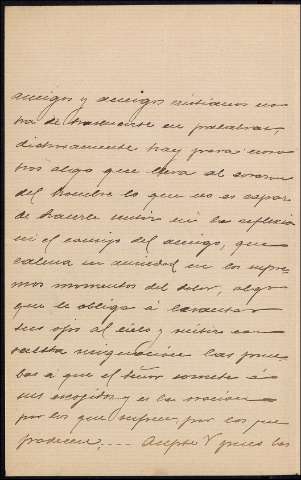 amigos y amigos cristianos no se
tra de traducirse en palabras,
dichosamente hay para noso
tros algo que lleva al corazon
del hombre lo que no es capaz
de hacerle sentir ni la reflexion
ni el consejo del amigo, que
calma su ansiedad en los supre
mos momentos del dolor, algo
que le obliga á levantar
sus ojos al cielo y sentir con
resignacion las prue
bas á que el Señor somete á
sus escogidos y es la oracion
por los que sufren por los que
padecen. .... Acepte V pues las